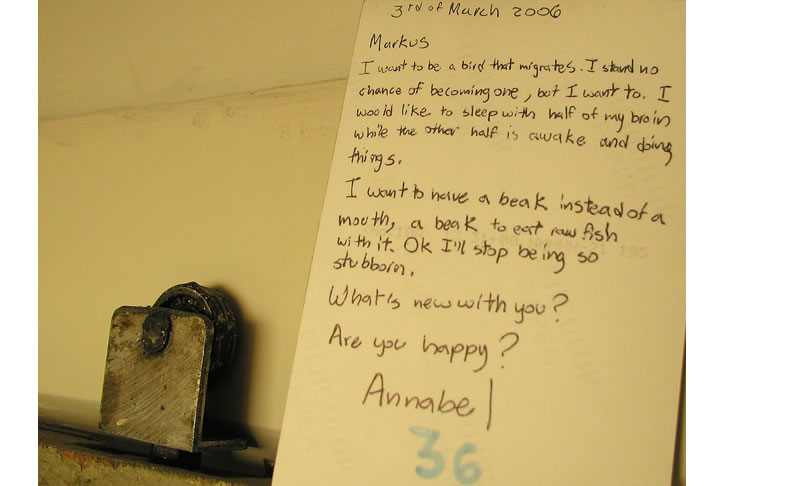 3rd of March 2006
Markus
I want to be a bird that migrates. I stand no
chance of becoming one, but I want to. I
would like to sleep with half of my brain
while the other half is awake and doing
things.
I want to have a beak instead of a
mouth, a beak to eat raw fish
with it. Ok I'll stop being so
stubborn.
What's new with you?
Are you happy?
Annabel
36